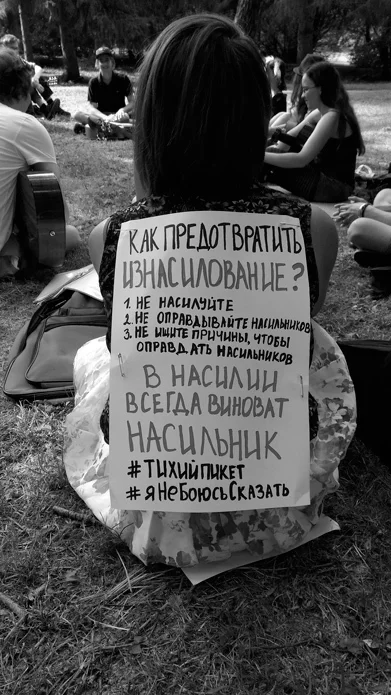 КАК ПРЕДОТВРАТИТЬ
ИЗНАСИЛОВАНИЕ?
1. НЕ НАСИЛУЙТЕ
2. НЕ ОПРАВДЫВАЙТЕ НАСИЛЬНИКОВ
3. НЕ ИЩИТЕ ПРИЧИНЫ, ЧТОБЫ
ОПРАВДАТЬ НАСИЛЬНИКОВ
В НАСИЛИИ
ВСЕГДА ВИНОВАТ
НАСИЛЬНИК
#ТИХИЙПИКЕТ
#яНеБоюсьСказать